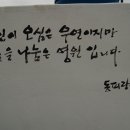 인이 오심은 우연이지만
을 나눔은 영원 입니다
돗따랑